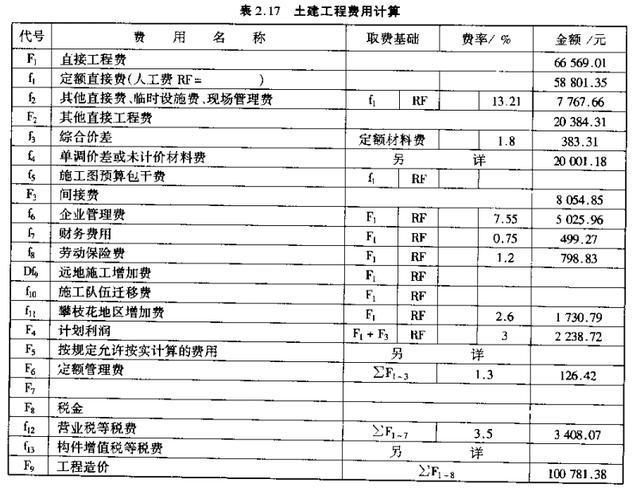 表2.17 土建工程费用计算
代号 费用名称 取费基础 费率/% 金额/元
F₁ 直接工程费 66 569.01
f₁ 定额直接费(人工费 RF= ) 58 801.35
f₂ 其他直接费、临时设施费、现场管理费 f₁ RF 13.21 7 767.66
F₂ 其他直接工程费 20 384.31
f₃ 综合价差 定额材料费 1.8 383.31
f₄ 单调价差或未计价材料费 另 详 20 001.18
f₅ 施工图预算包干费 f₁ RF
F₃ 间接费 8 054.85
f₆ 企业管理费 F₁ RF 7.55 5 025.96
f₇ 财务费用 F₁ RF 0.75 499.27
f₈ 劳动保险费 F₁ RF 1.2 798.83
Df₉ 远地施工增加费 F₁ RF
f₁₀ 施工队伍迁移费 F₁ RF
f₁₁ 攀枝花地区增加费 F₁ RF 2.6 1 730.79
F₄ 计划利润 F₁+F₃ RF 3 2 238.72
F₅ 按规定允许按实计算的费用 另 详
F₆ 定额管理费 ∑F₁~₃ 1.3 126.42
F₇
F₈ 税金
f₁₂ 营业税等税费 ∑F₁~₇ 3.5 3 408.07
f₁₃ 构件增值税等税费 另 详
F₉ 工程造价 ∑F₁~₈ 100 781.38